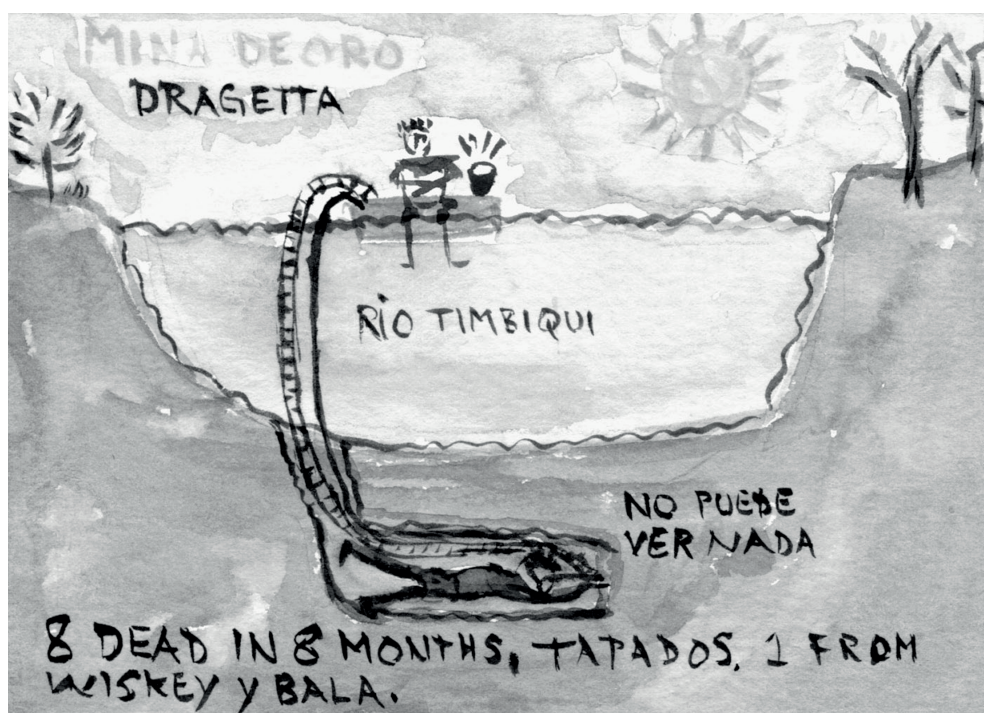 MINA DE ORO
DRAGETTA
RÍO TIMBIQUI
NO PUEDE
VER NADA
8 DEAD IN 8 MONTHS, TAPADOS, 1 FROM
WISKEY Y BALA.